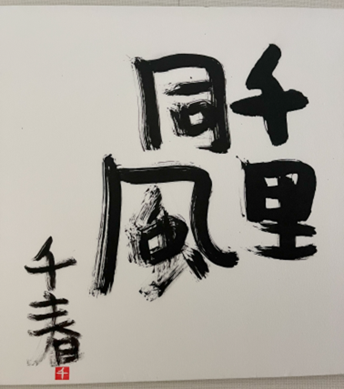 千里
同風
千春
千